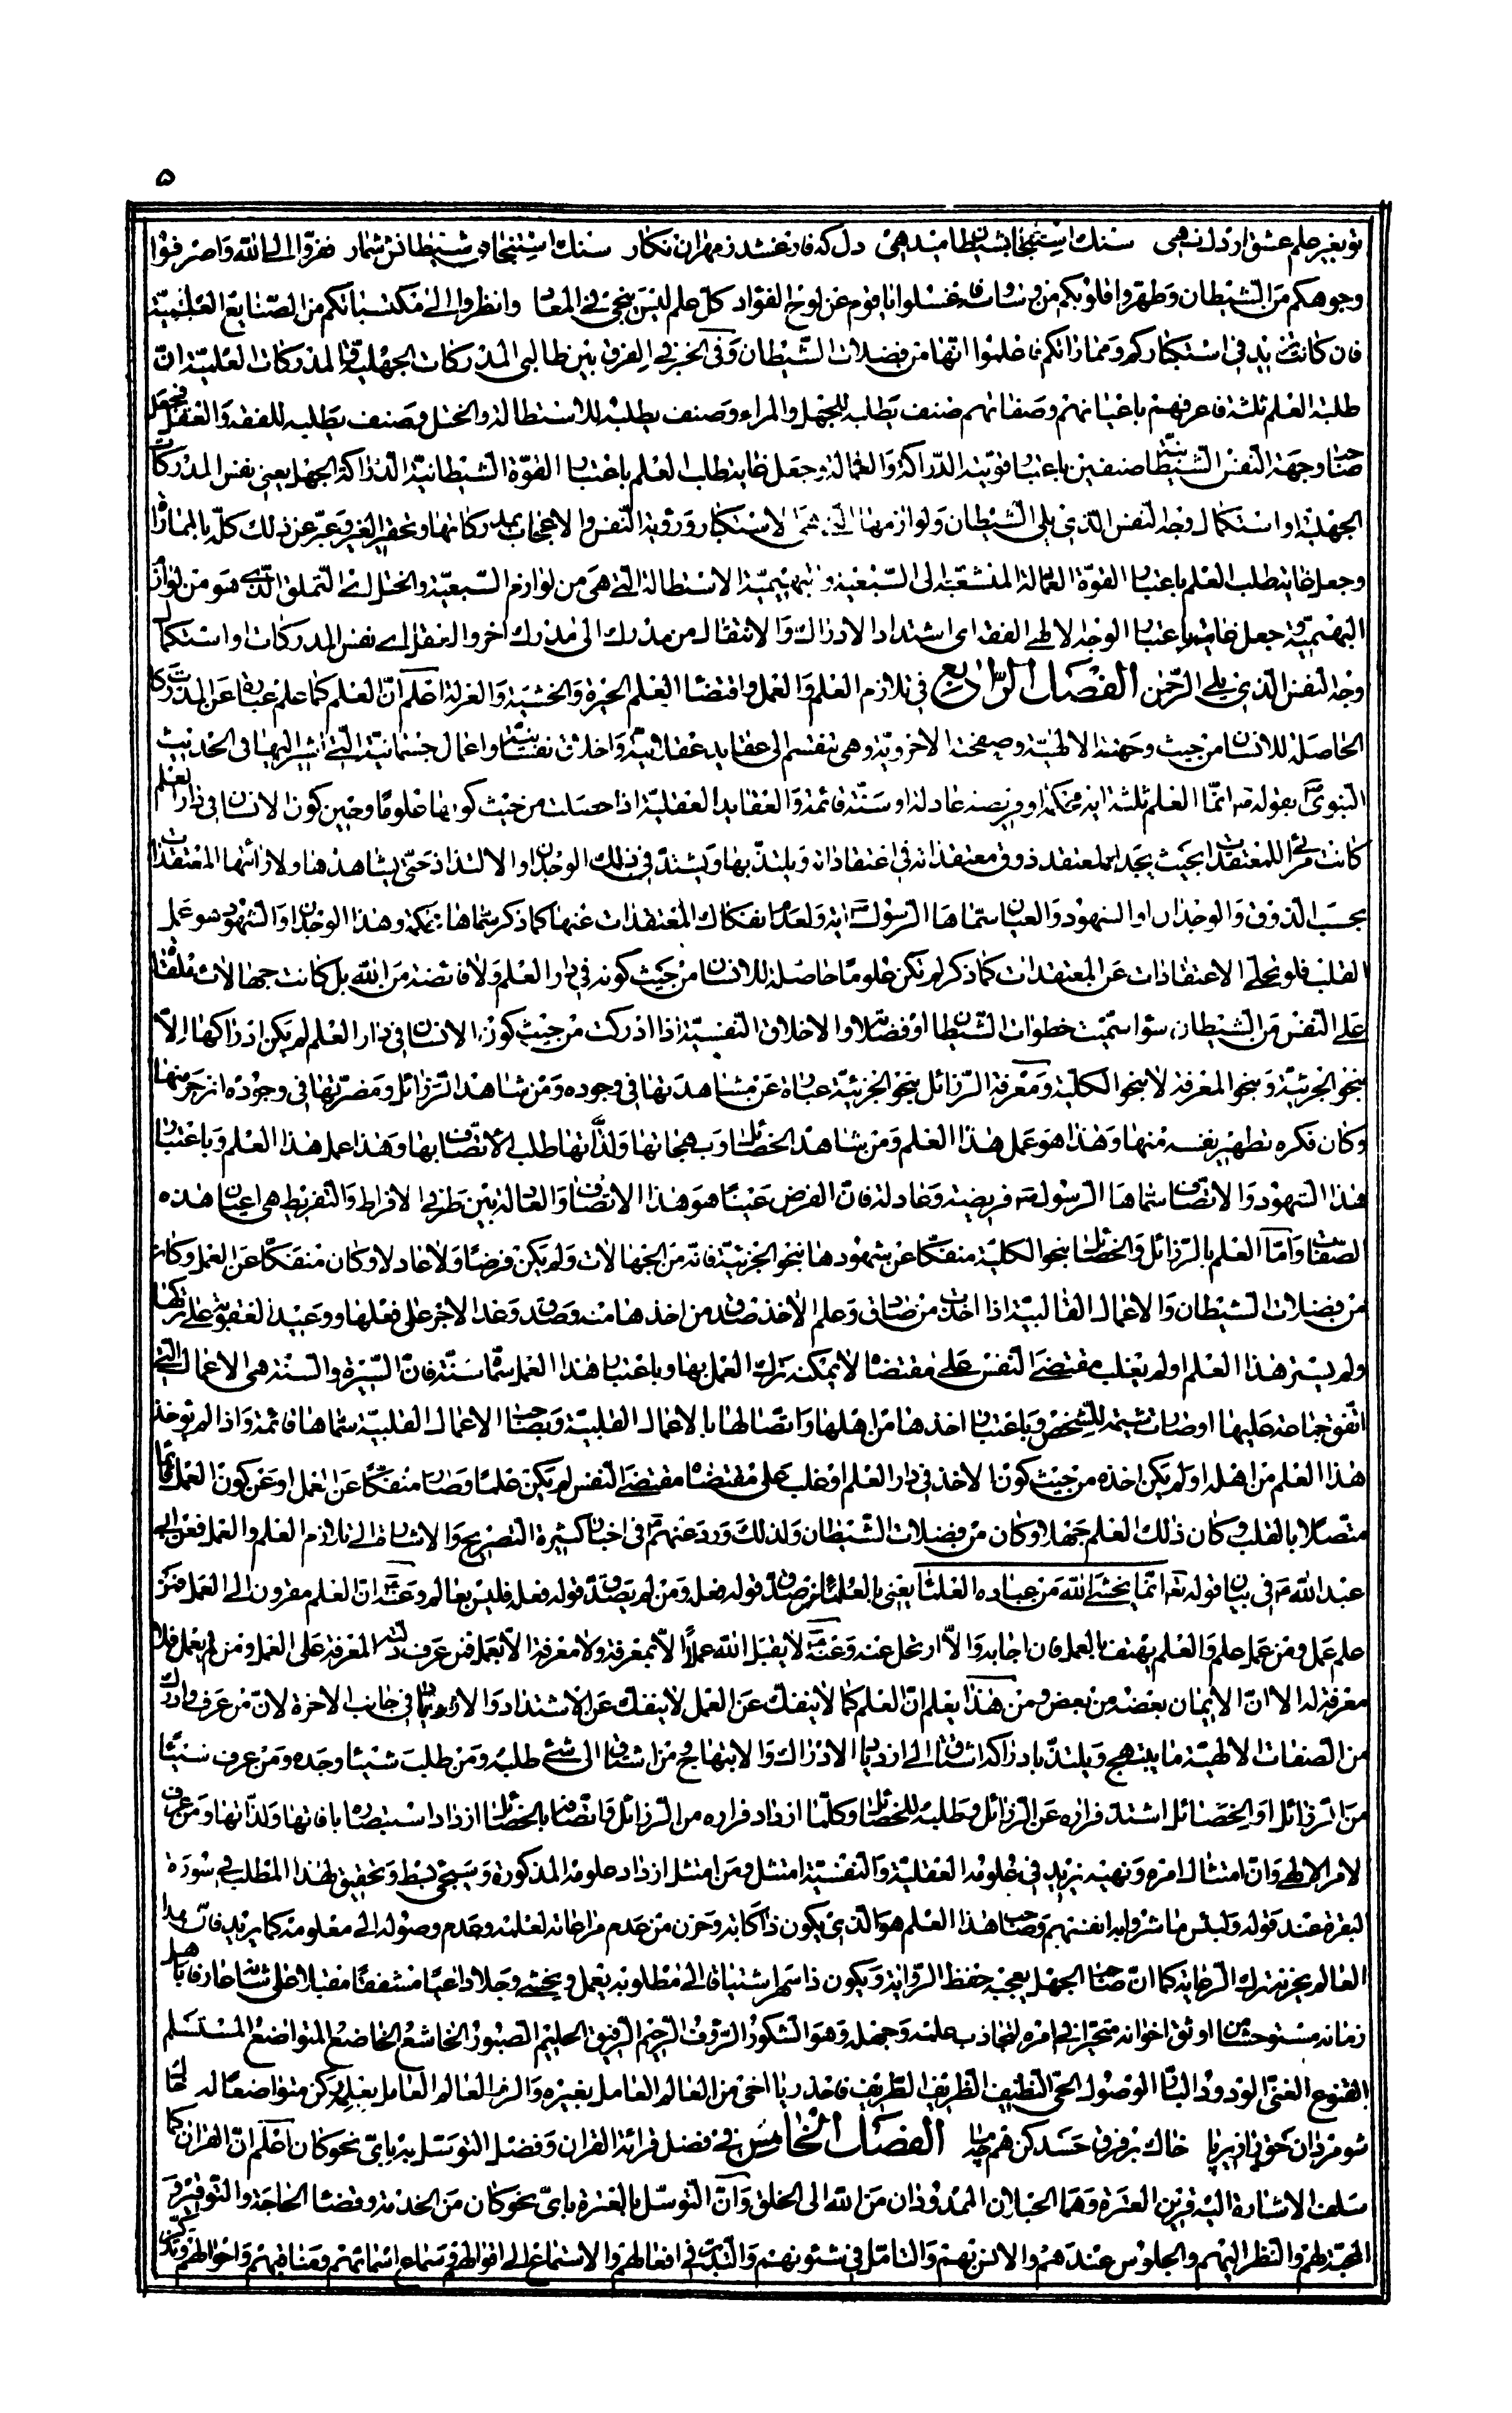 ۵
تو بغیر علم عشق ار دل نهی سنك استنجا بشیطان میدهی دل که فارغ شد ز مهر ان نکار سنك استنجای شیطانش شمار ففرّوا الی الله واصرفوا
وجوهکم من الشیطان وطهروا قلوبکم من وساوسه غسلوا یا قوم عن لوح الفؤاد کل علم لیس ینجی فی المعاد وانظروا الی مکتسباتکم من الصنایع العلمیة
فان کانت تزید فی استکبارکم ومماراتکم فاعلموا انها من فضلات الشیطان وفی الخبر فی الفرق بین طالبی المدرکات الجهلیة والمدرکات العلمیة ان
طلبة العلم ثلثة فاعرفهم باعیانهم وصفاتهم صنف یطلبه للجهل والمراء وصنف یطلبه للاستطالة والختل وصنف یطلبه للفقه والعقل فجعل
صاحب وجهة النفس الشیطانیة صنفین باعتبار قوتیه الدراکة والعمالة وجعل غایة طلب العلم باعتبار القوة الشیطانیة الدراکة الجهل یعنی نفس المدرکات
الجهلیة او استکمال وجه النفس الذی یلی الشیطان ولوازمها التی هی الاستکبار ورؤیة النفس والاعجاب بمدرکاتها وتحقیر الغیر وعبر عن ذلك کله بالمماراة
وجعل غایة طلب العلم باعتبار القوة العمالة المنشعبة الی السبعیة والبهیمیة الاستطالة التی هی من لوازم السبعیة والختل ای التملق الذی هو من لوازم
البهیمیة وجعل غایته باعتبار الوجه الالهی الفقه ای اشتداد الادراك والانتقال من مدرك الی مدرك اخر والعقل ای نفس المدرکات او استکمال
وجه النفس الذی یلی الرحمن الفصل الرابع فی تلازم العلم والعمل واقتضاء العلم الحیرة والخشیة والعزلة اعلم ان العلم کما علم عبارة عن المدرکات
الحاصلة للانسان من حیث وجهته الالهیة وصفحته الاخرویة وهی تنقسم الی عقاید عقلانیة واخلاق نفسانیة واعمال جسمانیة التی اشیر الیها فی الحدیث
النبوی بقوله ص انما العلم ثلثة ایة محکمة او فریضة عادلة او سنة قائمة والعقاید العقلیة اذا حصلت من حیث کونها علوما وحین کون الانسان فی دار العلم
کانت مرائی للمعتقدات بحیث یجد المعتقد ذوق معتقداته فی اعتقاداته ویلتذ بها ویشتد فی ذلك الوجدان والالتذاذ حتی یشاهدها ولازائتها المعتقدات
بحسب الذوق والوجدان او الشهود والعیان سماها الرسول ص ایة ولعدم انفکاك المعتقدات عنها کما ذکر سماها محکمة وهذا الوجدان والشهود هو عمل
القلب فلو تخلی الاعتقادات عن المعتقدات کما ذکر لم تکن علوما حاصلة للانسان من حیث کونه فی دار العلم ولا فائضة من الله بل کانت جهالات ملقاة
علی النفس من الشیطان سواء سمیت خطوات الشیطان او فضلا والاخلاق النفسیة اذا ادرکت من حیث کون الانسان فی دار العلم لم یکن ادراکها الا
بنحو الجزئیة وبنحو المعرفة لا بنحو الکلیة ومعرفة الرذائل بنحو الجزئیة عبارة عن مشاهدتها فی وجوده ومن شاهد الرذائل ومضرتها فی وجوده انزجر منها
وکان فکره تطهیر نفسه منها وهذا هو عمل هذا العلم ومن شاهد الخصائل وبهجاتها ولذاتها طلب الاتصاف بها وهذا عمل هذا العلم وباعتبار
هذا الشهود والاتصاف سماها الرسول ص فریضة وعادلة فان الفرض عینا هو هذا الاتصاف والعدالة بین طرفی الافراط والتفریط هی اعیان هذه
الصفات واما العلم بالرذائل والخصائل بنحو الکلیة منفکا عن شهودها بنحو الجزئیة فانه من الجهالات ولم یکن فرضا ولا عادلا وکان منفکا عن العمل وکان
من فضلات الشیطان والاعمال القالبیة اذا اخذت من صادق وعلم الاخذ صدق من اخذها منه وصدق وعد الاجر علی فعلها ووعید العقوبة علی ترکها
ولم یستر هذا العلم او لم یغلب مقتضی النفس علی مقتضاه لا یمکنه ترك العمل بها وباعتبار هذا العمل سماها سنة فان السیرة والسنة هی الاعمال التی
اتفق جماعة علیها او صارت شیمة للشخص وباعتبار اخذها من اهلها واتصالها بالاعمال القلبیة وبصاحب الاعمال القلبیة سماها قائمة واذا لم یؤخذ
هذا العلم من اهله او لم یکن اخذه من حیث کون الاخذ فی دار العلم او غلب علی مقتضاه مقتضی النفس لم یکن علما وصار منفکا عن العمل او عن کون العمل قائما
متصلا بالقلب وکان ذلك العلم جهلا وکان من فضلات الشیطان ولذلك ورد عنهم فی اخبار کثیرة التصریح والاشارة الی تلازم العلم والعمل فعن ابی
عبد الله ع فی بیان قوله تعالی انما یخشی الله من عباده العلماء یعنی بالعلماء من صدق قوله فعله ومن لم یصدق قوله فعله فلیس بعالم وعنه ان العلم مقرون الی العمل فمن
علم عمل ومن عمل علم والعلم یهتف بالعمل فان اجابه والا ارتحل عنه وعنه لا یقبل الله عملا الا بمعرفة ولا معرفة الا بعمل فمن عرف دلته المعرفة علی العمل ومن لم یعمل فلا
معرفة له الا ان الایمان بعضه من بعض ومن هذا یعلم ان العلم کما لا ینفك عن العمل لا ینفك عن الاشتداد والازدیاد فی جانب الاخرة لان من عرف وادرك
من الصفات الالهیة ما یبتهج ویلتذ بادراکه اشتاق الی ازدیاد الادراك والابتهاج ومن اشتاق الی شئ طلبه ومن طلب شیئا وجده ومن عرف شیئا
من الرذائل او الخصائل اشتد فراره عن الرذائل وطلبه للخصائل وکلما ازداد فراره من الرذائل واتصافه بالخصائل ازداد استبصاره بافاتها ولذاتها ومن عرف
الامر الالهی وان امتثال امره ونهیه یزید فی علومه العقلیة والنفسیة امتثل ومن امتثل ازداد علومه المذکورة وسیجئ بسط وتحقیق لهذا المطلب فی سورة
البقرة عند قوله ولبئس ما شروا به انفسهم وصاحب هذا العلم هو الذی یکون ذا کآبة وحزن من عدم مراعاته لعلمه وعدم وصوله الی معلومه کما یرید فان
العالم یحزنه ترك الرعایة کما ان صاحب الجهل یعجبه حفظ الروایة ویکون ذا سهر اشتیاقا الی مطلوبه یعمل ویخشی وجلا داعیا مشفقا مقبلا علی شانه عارفا باهل
زمانه مستوحشا من اوثق اخوانه متحیرا فی امره لتجاذب علمه وجهله وهو الشکور الرؤف الرحیم الرفیق الحلیم الصبور الخاشع الخاضع المتواضع المستسلم
القنوع الغنی الودود البار الوصول الحی النظیف الظریف الطریف فاحذر یا اخی من العالم العامل بغیره والزم العالم العامل بعلمه وکن متواضعا له
شو مردان حق را زیر پا خاك بر فرق حسد کن همچو ما الفصل الخامس فی فضل قرائة القران وفضل التوسل به بای نحو کان اعلم ان القران کما
سلف الاشارة الیه قرین العترة وهما الحبلان الممدودان من الله الی الخلق وان التوسل بالعترة بای نحو کان من الخدمة وقضاء الحاجة والتوقیر و
المحبة لهم والنظر الیهم والجلوس عندهم والانس بهم والتامل فی شئونهم والتدبر فی افعالهم والاستماع الی اقوالهم وسماع اسمائهم ومناقبهم واحوالهم